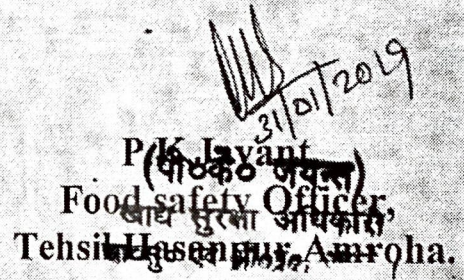 31/01/2019
P.K. Jayant
(पी०के० जयन्त)
Food safety Officer,
खाद्य सुरक्षा अधिकारी
Tehsil Hasanpur, Amroha.